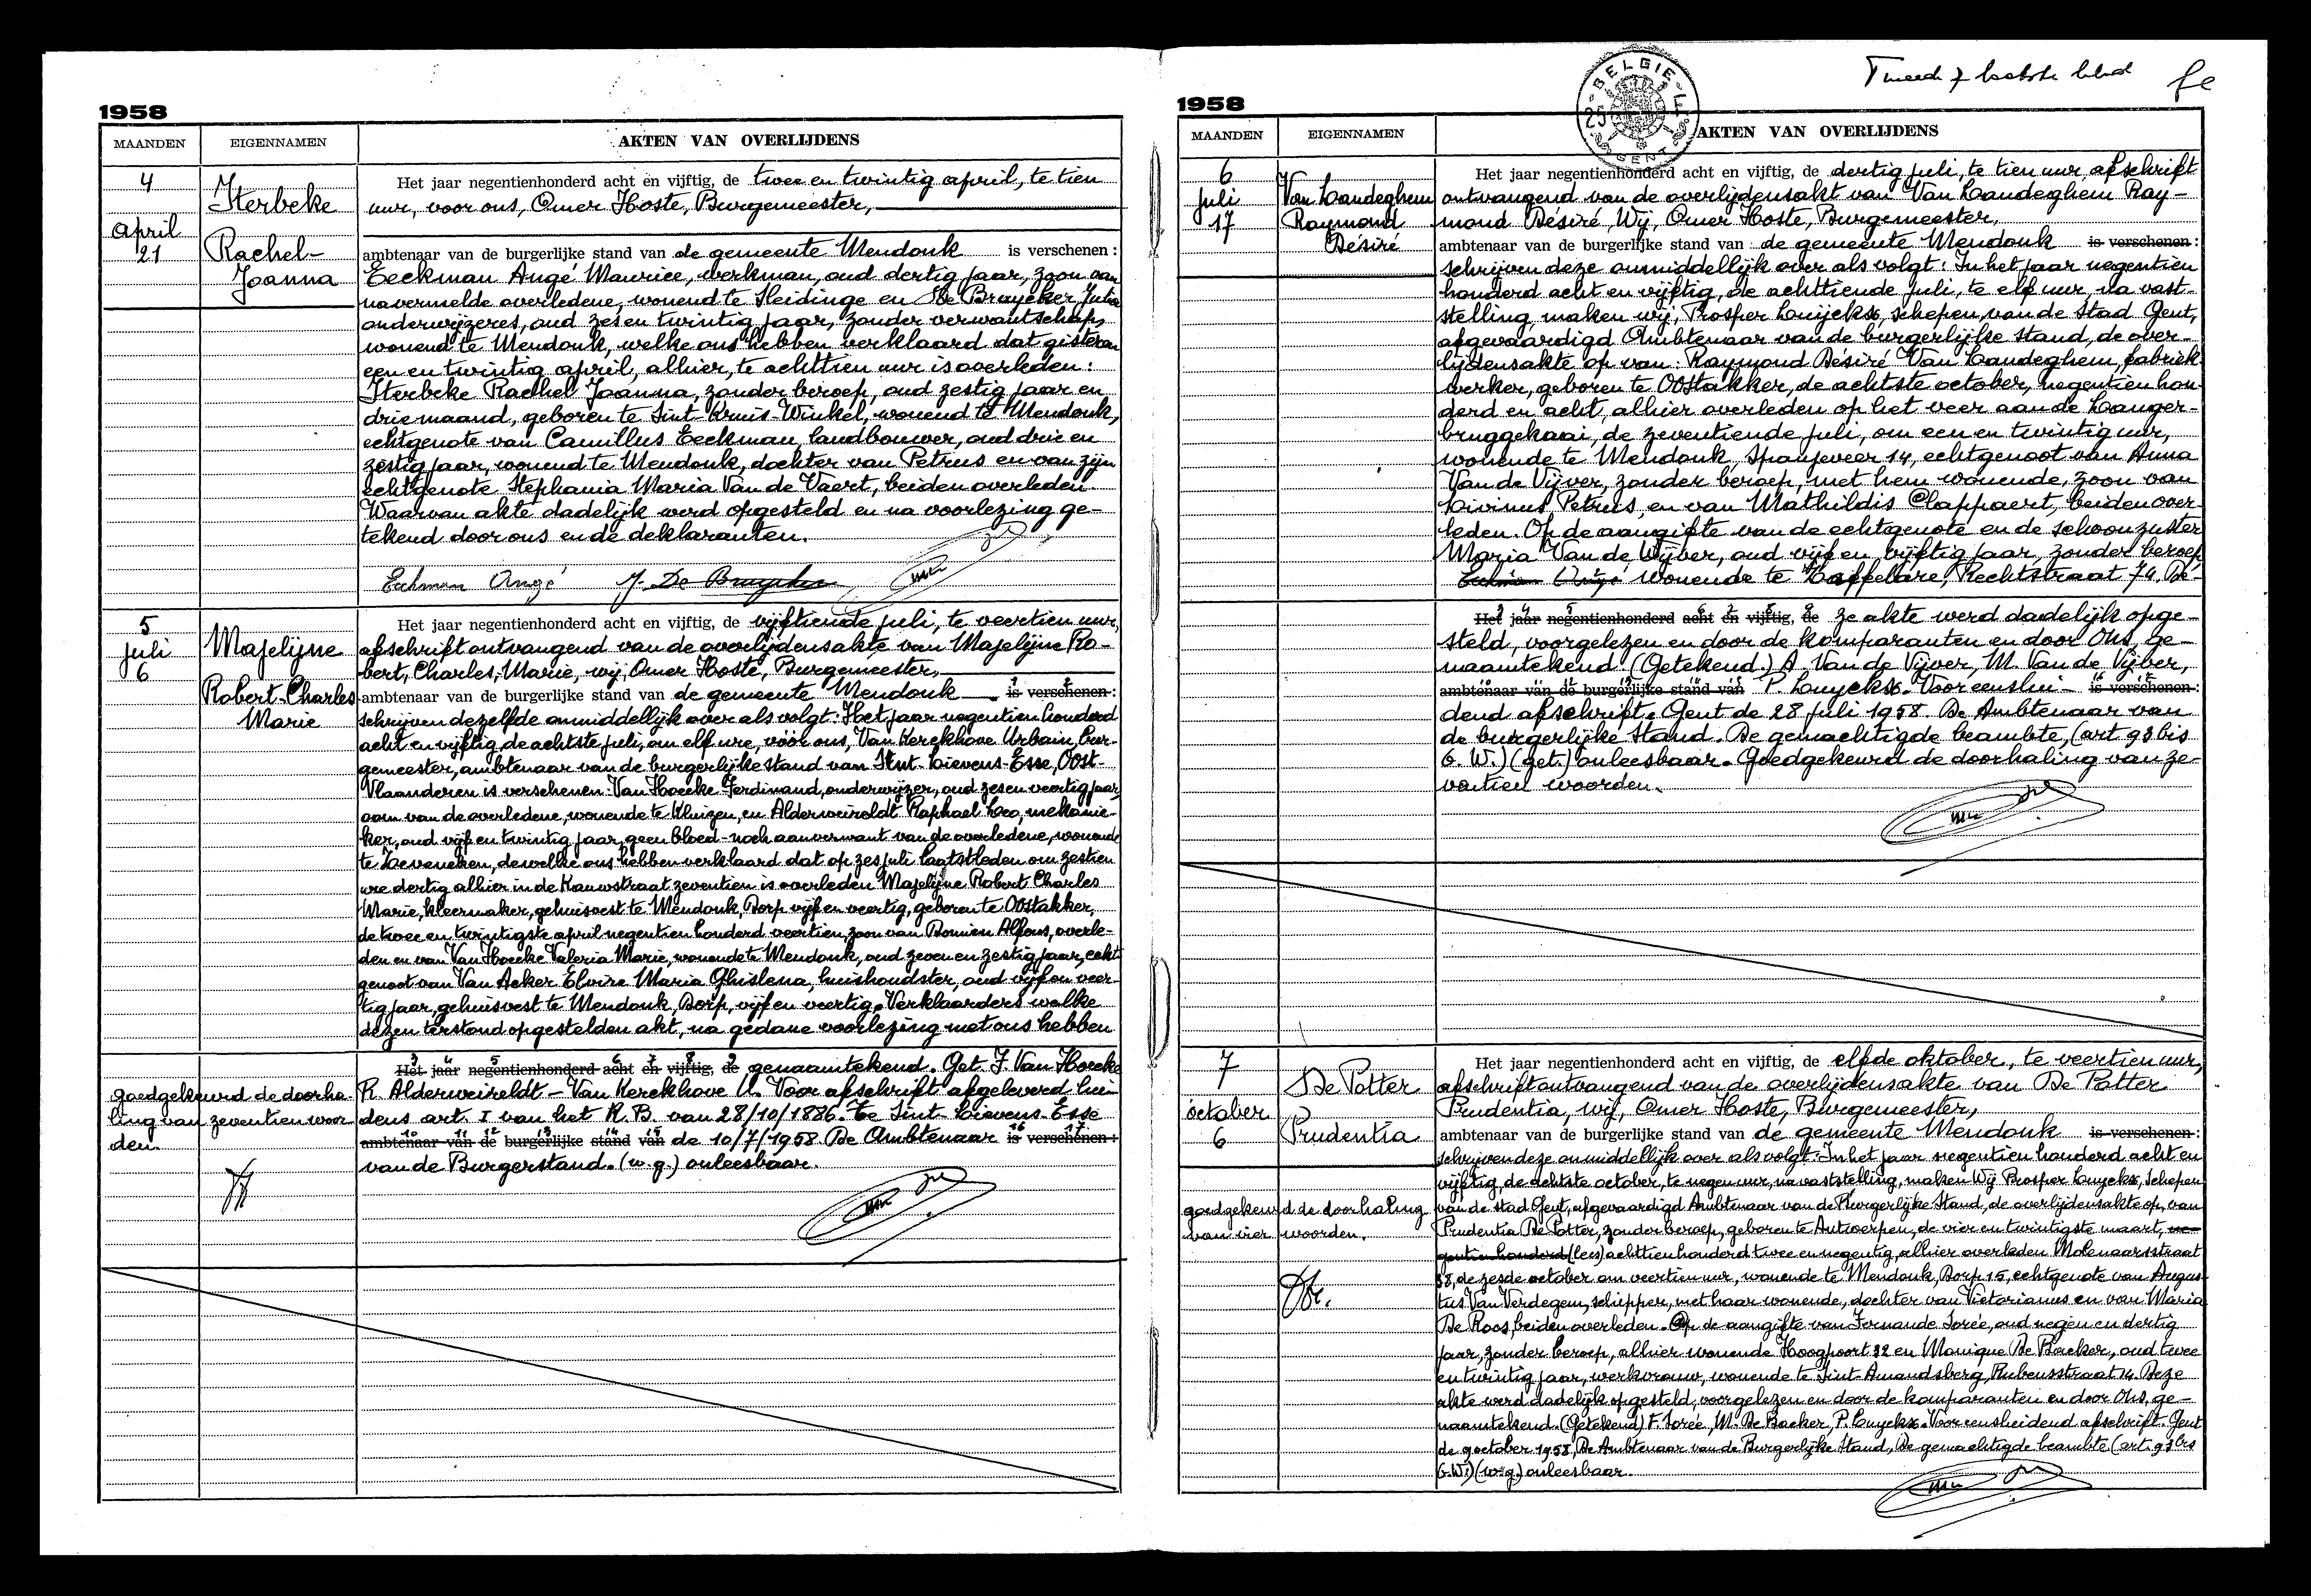 1958
MAANDEN EIGENNAMEN AKTEN VAN OVERLIJDENS
4
april
21
Iterbeke
Rachel-
Joanna
Het jaar negentienhonderd acht en vijftig, de twee en twintig april, te tien
uur, voor ons, Omer Hoste, Burgemeester,
ambtenaar van de burgerlijke stand van de gemeente Mendonk is verschenen :
Eeckman Angé Maurice, werkman, oud dertig jaar, zoon van
navermelde overledene, wonend te Sleidinge en De Bruycker Julia
onderwijzeres, oud zes en twintig jaar, zonder verwantschap,
wonend te Mendonk, welke ons hebben verklaard dat gisteren
een en twintig april, alhier, te achttien uur is overleden :
Iterbeke Rachel Joanna, zonder beroep, oud zestig jaar en
drie maand, geboren te Sint-Kruis-Winkel, wonend te Mendonk,
echtgenote van Camillus Eeckman, landbouwer, oud drie en
zestig jaar, wonend te Mendonk, dochter van Petrus en van zijn
echtgenote Stephania Maria Van de Vaert, beiden overleden.
Waarvan akte dadelijk werd opgesteld en na voorlezing ge-
tekend door ons en de deklaranten.
Eeckman Angé J. De Bruycker
5
juli
6
Majelijne
Robert-Charles
Marie
Het jaar negentienhonderd acht en vijftig, de vijftiende juli, te veertien uur,
afschrift ontvangend van de overlijdensakte van Majelijne Ro-
bert, Charles, Marie, wij, Omer Hoste, Burgemeester,
ambtenaar van de burgerlijke stand van de gemeente Mendonk is verschenen :
schrijven dezelfde onmiddellijk over als volgt : Het jaar negentien honderd
acht en vijftig, de achtste juli, om elf ure, vóór ons, Van Kerckhove Urbain, bur-
gemeester, ambtenaar van de burgerlijke stand van Sint-Lievens-Esse, Oost-
Vlaanderen is verschenen Van Hoecke Ferdinand, onderwijzer, oud zes en veertig jaar,
oom van de overledene, wonende te Kluizen, en Alderweireldt Raphael Leo, mekanie-
ker, oud vijf en twintig jaar, geen bloed- noch aanverwant van de overledene, wonende
te Zeveneken, dewelke ons hebben verklaard dat op zes juli laatstleden om zestien
ure dertig alhier in de Kauwstraat zeventien is overleden Majelijne Robert Charles
Marie, kleermaker, gehuisvest te Mendonk, Dorp vijf en veertig, geboren te Oostakker,
de twee en twintigste april negentien honderd veertien, zoon van Domien Alfons, overle-
den en van Van Hoecke Valeria Marie, wonende te Mendonk, oud zeven en zestig jaar, echt-
genoot van Van Acker Elvire Maria Ghislena, huishoudster, oud vijf en veer-
tig jaar, gehuisvest te Mendonk, Dorp, vijf en veertig. Verklaarders welke
dezen terstond opgestelden akt, na gedane voorlezing met ons hebben
Het jaar negentienhonderd acht en vijftig, de genaamtekend. Get. F. Van Hoecke
R. Alderweireldt - Van Kerckhove U. Voor afschrift afgeleverd lui-
dens art. I van het K.B. van 28/10/1886. Te Sint-Lievens-Esse
ambtenaar van de burgerlijke stand van de 10/7/1958. De Ambtenaar is verschenen :
van de Burgerstand. (w.g.) onleesbaar.
goedgekeurd de doorha-
ling van zeventien woor-
den.
Tweede & laatste blad
1958
BELGIE
25
GENT
MAANDEN EIGENNAMEN AKTEN VAN OVERLIJDENS
6
juli
17
Van Landeghem
Raymond
Désiré
Het jaar negentienhonderd acht en vijftig, de dertig juli, te tien uur, afschrift
ontvangend van de overlijdensakt van Van Landeghem Ray-
mond Désiré, Wij, Omer Hoste, Burgemeester,
ambtenaar van de burgerlijke stand van de gemeente Mendonk is verschenen :
schrijven deze onmiddellijk over als volgt : In het jaar negentien
honderd acht en vijftig, de achttiende juli, te elf uur, na vast-
stelling, maken wij, Prosper Luyckx, schepen van de Stad Gent,
afgevaardigd Ambtenaar van de burgerlijke stand, de over-
lijdensakte op van : Raymond Désiré Van Landeghem, fabriek-
werker, geboren te Oostakker, de achtste october, negentien hon-
derd en acht, alhier overleden op het veer aan de Langer-
bruggekaai, de zeventiende juli, om een en twintig uur,
wonende te Mendonk, Spanjeveer 14, echtgenoot van Anna
Van de Vijver, zonder beroep, met hem wonende, zoon van
Livinus Petrus, en van Mathildis Clappaert, beiden over-
leden. Op de aangifte van de echtgenote en de schoonzuster
Maria Van de Vijver, oud vijf en vijftig jaar, zonder beroep
wonende te Kaffelare, Rechtstraat 74. De-
Het jaar negentienhonderd acht en vijftig, de ze akte werd dadelijk opge-
steld, voorgelezen en door de komparanten en door Ons, ge-
naamtekend. (Getekend.) A. Van de Vijver, M. Van de Vijver,
ambtenaar van de burgerlijke stand van P. Luyckx. Voor eenslui- is verschenen :
dend afschrift. Gent de 28 juli 1958. De Ambtenaar van
de burgerlijke Stand. De gemachtigde beambte, (art 93 bis
G.W.) (get.) onleesbaar. Goedgekeurd de doorhaling van ze-
ventien woorden.
7
october
6
De Potter
Prudentia
Het jaar negentienhonderd acht en vijftig, de elfde oktober, te veertien uur,
afschrift ontvangend van de overlijdensakte van De Potter
Prudentia, wij, Omer Hoste, Burgemeester,
ambtenaar van de burgerlijke stand van de gemeente Mendonk is verschenen :
schrijven deze onmiddellijk over als volgt : In het jaar negentien honderd acht en
vijftig, de achtste october, te negen uur, na vaststelling, maken Wij Prosper Luyckx, Schepen
van de stad Gent, afgevaardigd Ambtenaar van de Burgerlijke Stand, de overlijdensakte op, van
Prudentia De Potter, zonder beroep, geboren te Antwerpen, de vier en twintigste maart, ne-
gentien honderd (lees) achttien honderd twee en negentig, alhier overleden Molenaarsstraat
38, de zesde october om veertien uur, wonende te Mendonk, Dorp 15, echtgenote van Augus-
tus Van Verdegem, schipper, met haar wonende, dochter van Victorianus en van Maria
De Roos, beiden overleden. Op de aangifte van Fernande Sorée, oud negen en dertig
jaar, zonder beroep, alhier wonende Hoogpoort 32 en Monique De Backer, oud twee
en twintig jaar, werkvrouw, wonende te Sint-Amandsberg, Rubensstraat 14. Deze
akte werd dadelijk opgesteld, voorgelezen en door de komparanten en door Ons, ge-
naamtekend. (Getekend) F. Sorée, M. De Backer, P. Luyckx. Voor eensluidend afschrift. Gent
de 9 october 1958, De Ambtenaar van de Burgerlijke Stand, De gemachtigde beambte (art. 93 bis
G.W.) (w.g.) onleesbaar.
goedgekeurd de doorhaling
van vier woorden.